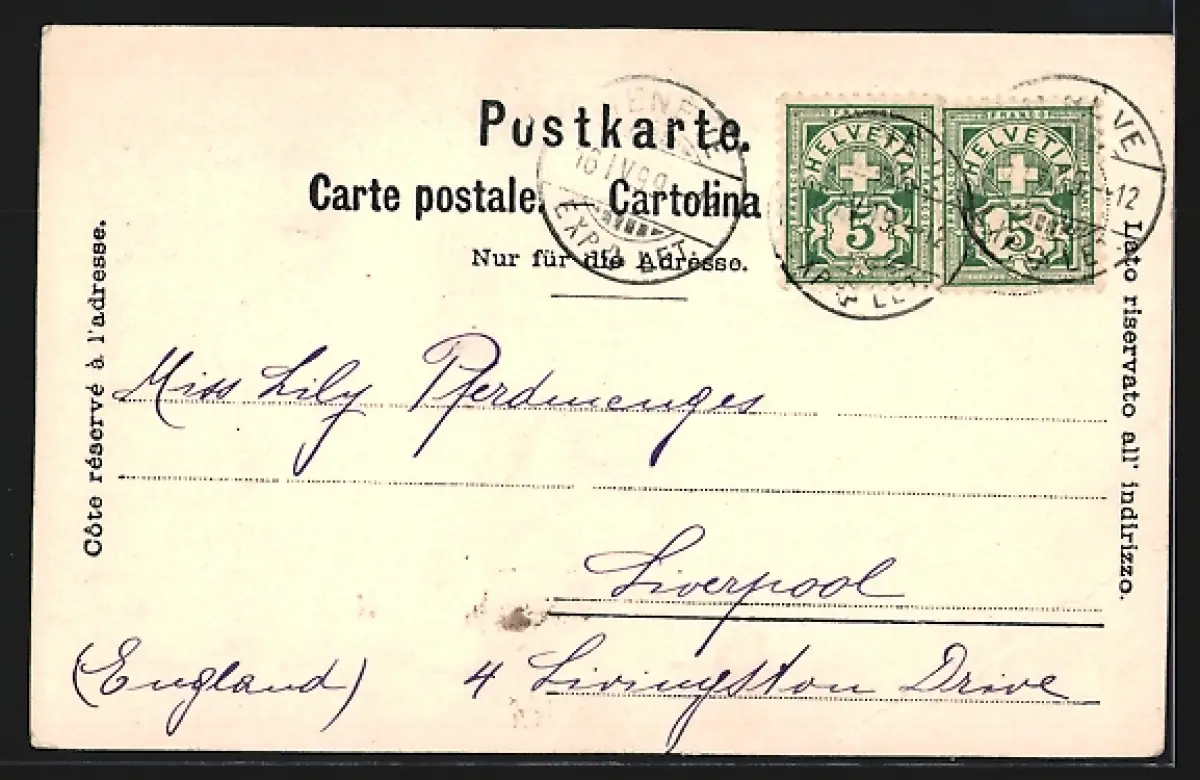 Postkarte.
Carte postale. Cartolina
Nur für die Adresse.
Côte réservé à l'adresse.
Lato riservato all' indirizzo.
FRANCO
HELVETIA
5
FRANCO
HELVETIA
5
EXP. LET.
Miss Lily Pferdmenges
Liverpool
(England) 4 Livingston Drive